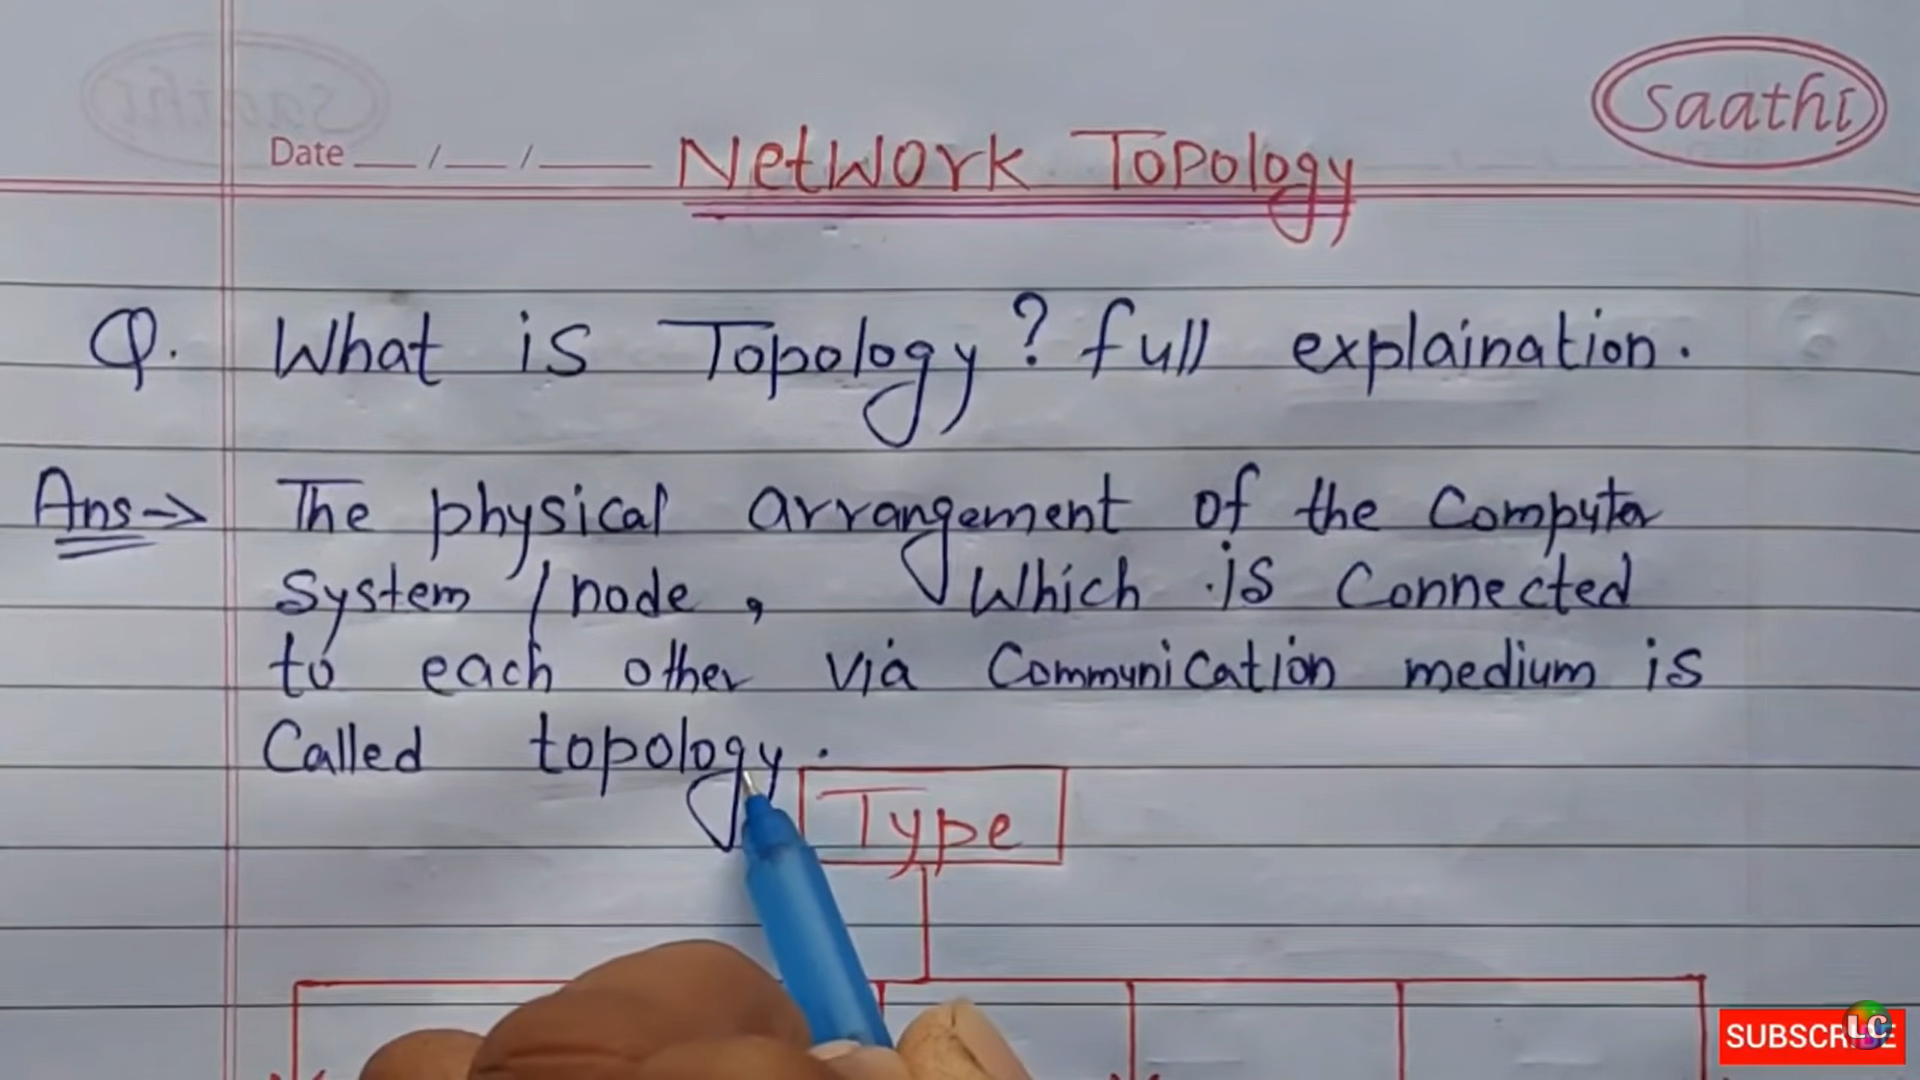 Saathi
Date __/__/____
Network Topology
Q. What is Topology? full explaination.
Ans→ The physical arrangement of the Computer
System / node, Which is Connected
to each other via Communication medium is
Called topology.
Type
SUBSCRIBE
LC